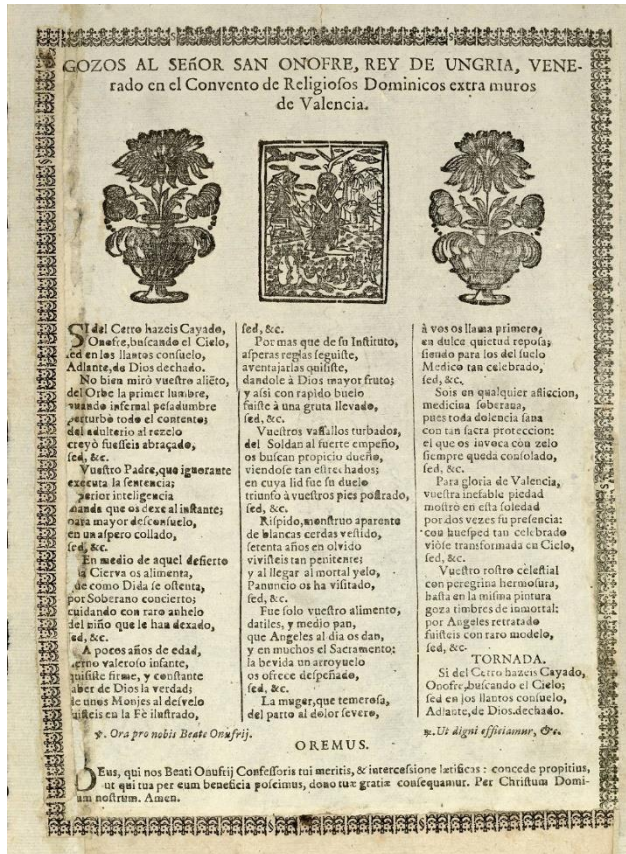 GOZOS AL SEñOR SAN ONOFRE, REY DE UNGRIA, VENE-
rado en el Convento de Religiosos Dominicos extra muros
de Valencia.
SI del Cetro hazeis Cayado,
Onofre, buscando el Cielo,
sed en los llantos consuelo,
Adlante, de Dios dechado.
No bien mirò vuestro aliẽto,
del Orbe la primer lumbre,
quando infernal pesadumbre
perturbò todo el contento;
del adulterio al rezelo
creyò fuesseis abraçado,
sed, &c.
Vuestro Padre, que ignorante
executa la sentencia;
perior inteligencia
manda que os dexe al instante;
para mayor desconsuelo,
en un aspero collado,
sed, &c.
En medio de aquel desierto
la Cierva os alimenta,
que como Dida se ostenta,
por Soberano concierto;
cuidando con raro anhelo
del niño que le han dexado,
sed, &c.
A pocos años de edad,
terno valeroso infante,
quisiste firme, y constante
aber de Dios la verdad;
de unos Monjes al desvelo
uisteis en la Fè ilustrado,
sed, &c.
Por mas que de su Instituto,
asperas reglas seguiste,
aventajarlas quisiste,
dandole à Dios mayor fruto;
y assi con rapido buelo
fuiste à una gruta llevado,
sed, &c.
Vuestros vassallos turbados,
del Soldan al fuerte empeño,
os buscan propicio dueño,
viendose tan estrechados;
en cuya lid fue su duelo
triunfo à vuestros pies postrado,
sed, &c.
Rispido, monstruo aparente
de blancas cerdas vestido,
setenta años en olvido
vivisteis tan penitente;
y al llegar al mortal yelo,
Panuncio os ha visitado,
sed, &c.
Fue solo vuestro alimento,
datiles, y medio pan,
que Angeles al dia os dan,
y en muchos el Sacramento:
la bevida un arroyuelo
os ofrece despeñado,
sed, &c.
La muger, que temerosa,
del parto al dolor severo,
à vos os llama primero,
en dulce quietud reposa;
siendo para los del suelo
Medico tan celebrado,
sed, &c.
Sois en qualquier afliccion,
medicina soberana,
pues toda dolencia sana
con tan sacra proteccion:
el que os invoca con zelo
siempre queda consolado,
sed, &c.
Para gloria de Valencia,
vuestra inefable piedad
mostrò en esta soledad
por dos vezes su presencia:
con huesped tan celebrado
viòse transformada en Cielo,
sed, &c.
Vuestro rostro celestial
con peregrina hermosura,
hasta en la misma pintura
goza timbres de inmortal:
por Angeles retratado
fuisteis con raro modelo,
sed, &c.
TORNADA.
Si del Cetro hazeis Cayado,
Onofre, buscando el Cielo;
sed en los llantos consuelo,
Adlante, de Dios dechado.
℣. Ora pro nobis Beate Onufrij.
℟. Ut digni efficiamur, &c.
OREMUS.
DEus, qui nos Beati Onufrij Confessoris tui meritis, & intercessione lætificas: concede propitius,
ut qui tua per eum beneficia poscimus, dono tuæ gratiæ consequamur. Per Christum Domi-
um nostrum. Amen.